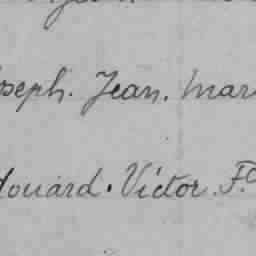 oseph. Jean. mar
douard. Victor. F.